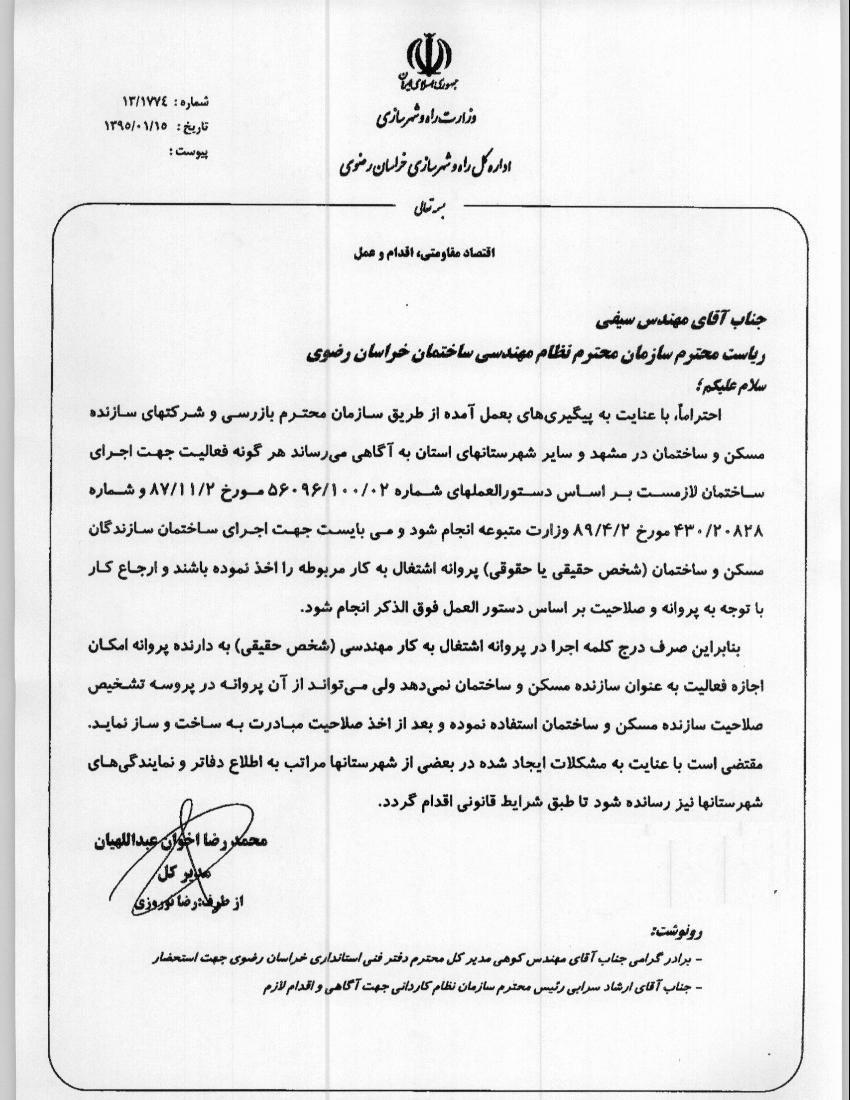 جمهوری اسلامی ایران
وزارت راه و شهرسازی
اداره کل راه و شهرسازی خراسان رضوی
شماره : ۱۳/۱۷۷۴
تاریخ : ۱۳۹۵/۰۱/۱۵
پیوست :
بسمه تعالی
اقتصاد مقاومتی، اقدام و عمل
جناب آقای مهندس سیفی
ریاست محترم سازمان محترم نظام مهندسی ساختمان خراسان رضوی
سلام علیکم؛
احتراماً، با عنایت به پیگیری‌های بعمل آمده از طریق سازمان محترم بازرسی و شرکتهای سازنده
مسکن و ساختمان در مشهد و سایر شهرستانهای استان به آگاهی می‌رساند هر گونه فعالیت جهت اجرای
ساختمان لازمست بر اساس دستورالعملهای شماره ۵۶۰۹۶/۱۰۰/۰۲ مورخ ۸۷/۱۱/۲ و شماره
۴۳۰/۲۰۸۲۸ مورخ ۸۹/۴/۲ وزارت متبوعه انجام شود و می بایست جهت اجرای ساختمان سازندگان
مسکن و ساختمان (شخص حقیقی یا حقوقی) پروانه اشتغال به کار مربوطه را اخذ نموده باشند و ارجاع کار
با توجه به پروانه و صلاحیت بر اساس دستور العمل فوق الذکر انجام شود.
بنابراین صرف درج کلمه اجرا در پروانه اشتغال به کار مهندسی (شخص حقیقی) به دارنده پروانه امکان
اجازه فعالیت به عنوان سازنده مسکن و ساختمان نمی‌دهد ولی می‌تواند از آن پروانه در پروسه تشخیص
صلاحیت سازنده مسکن و ساختمان استفاده نموده و بعد از اخذ صلاحیت مبادرت به ساخت و ساز نماید.
مقتضی است با عنایت به مشکلات ایجاد شده در بعضی از شهرستانها مراتب به اطلاع دفاتر و نمایندگی‌های
شهرستانها نیز رسانده شود تا طبق شرایط قانونی اقدام گردد.
محمد رضا اخوان عبداللهیان
مدیر کل
از طرف:رضا نوروزی
رونوشت:
- برادر گرامی جناب آقای مهندس کوهی مدیر کل محترم دفتر فنی استانداری خراسان رضوی جهت استحضار
- جناب آقای ارشاد سرابی رئیس محترم سازمان نظام کاردانی جهت آگاهی و اقدام لازم